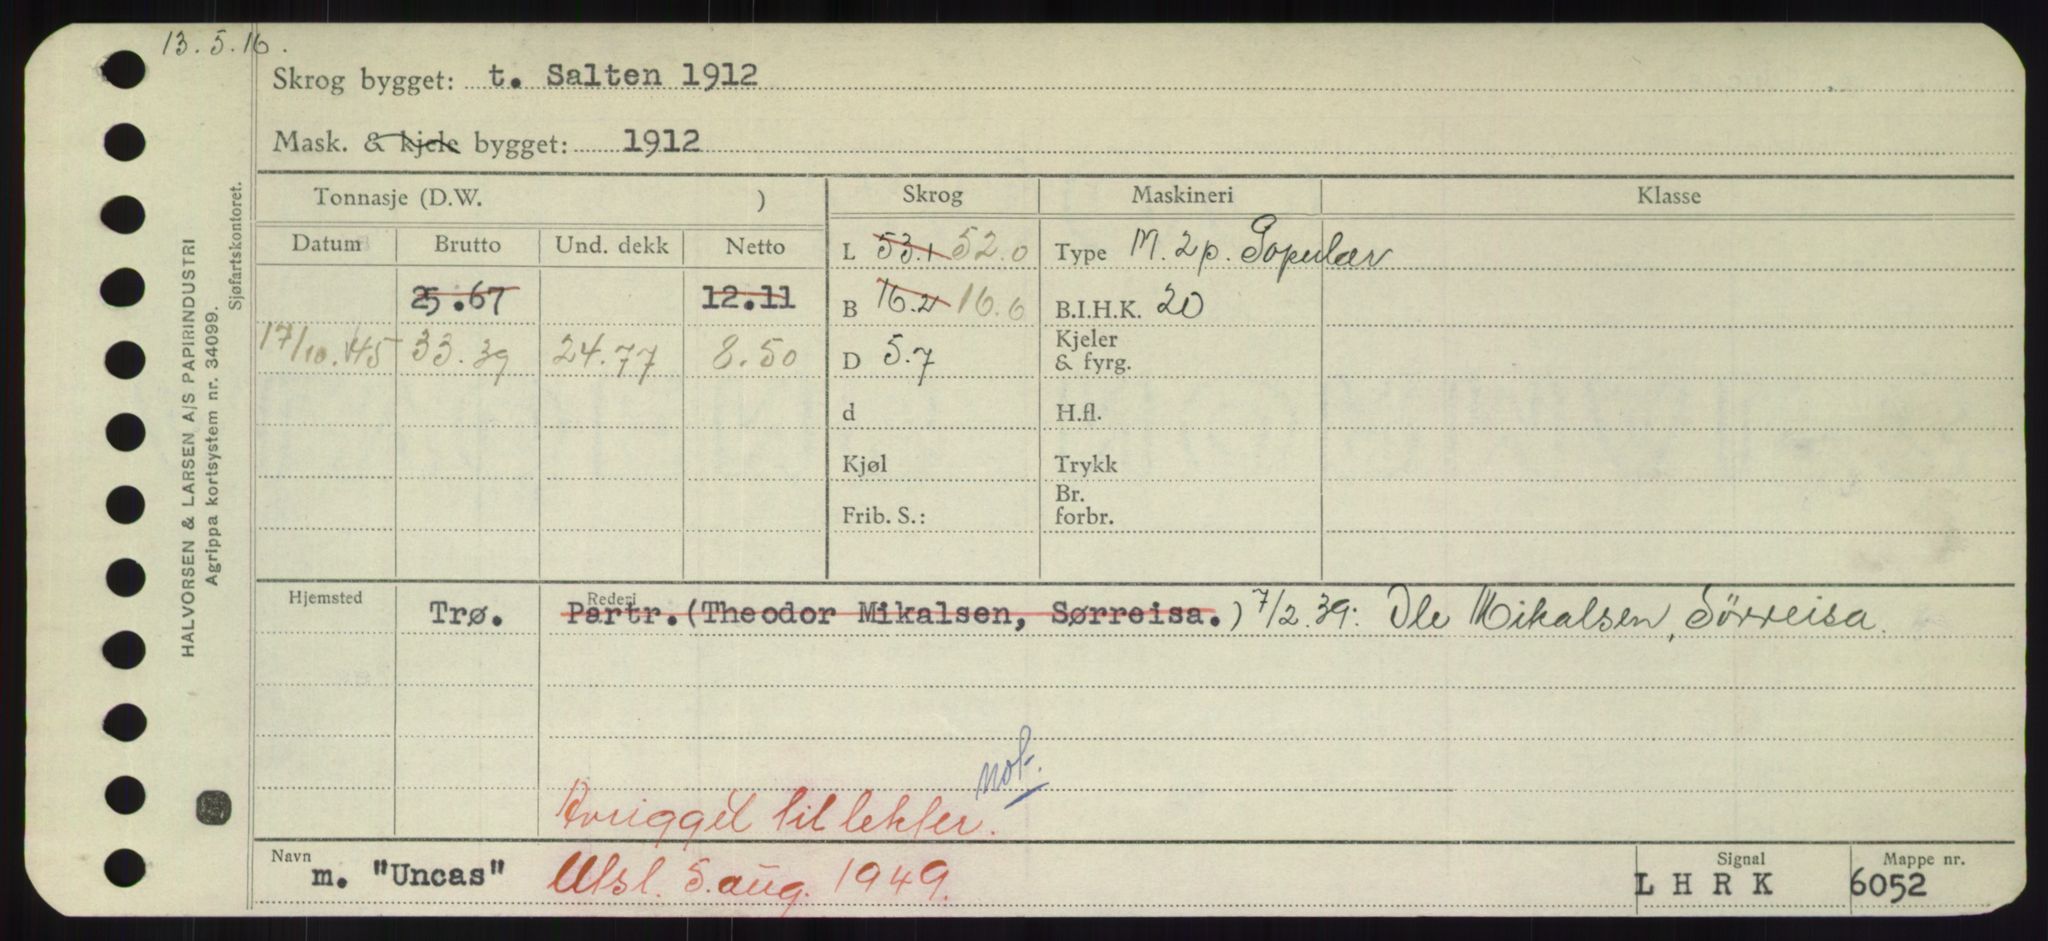 13.5.16.
Skrog bygget: t. Salten 1912
Mask. & kjele bygget: 1912
Tonnasje (D.W. ) Skrog Maskineri Klasse
Datum Brutto Und. dekk Netto
L 53.1 52.0 Type M. 2p. Populær
25.67 12.11 B 16.2 16.6 B.I.H.K. 20
17/10.45 33.39 24.77 8.50 D 5.7 Kjeler & fyrg.
d H.fl.
Kjøl Trykk
Frib. S.: Br. forbr.
Hjemsted Rederi
Trø. Partr.(Theodor Mikalsen, Sørreisa.) 7/2.39: Ole Mikalsen, Sörreisa.
not.
Avrigget til lekter.
Navn m. "Uncas" Utsl. 5. aug. 1949. Signal LHRK Mappe nr. 6052
HALVORSEN & LARSEN A/S PAPIRINDUSTRI
Agrippa kortsystem nr. 34099.
Sjøfartskontoret.